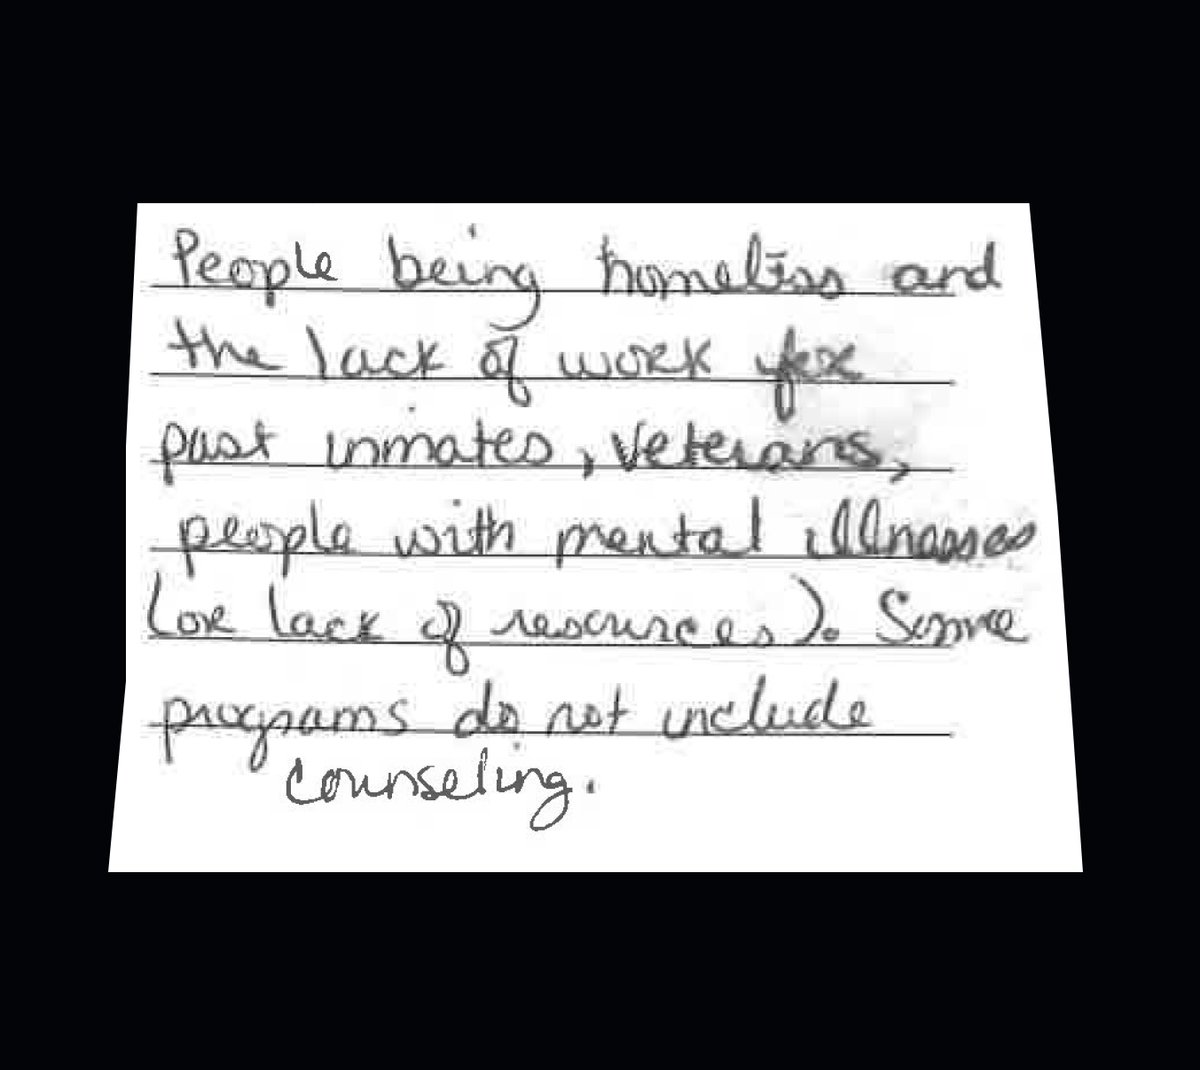 People being homeless and
the lack of work for
past inmates, veterans,
people with mental illnesses
(or lack of resources). Some
programs do not include
counseling.